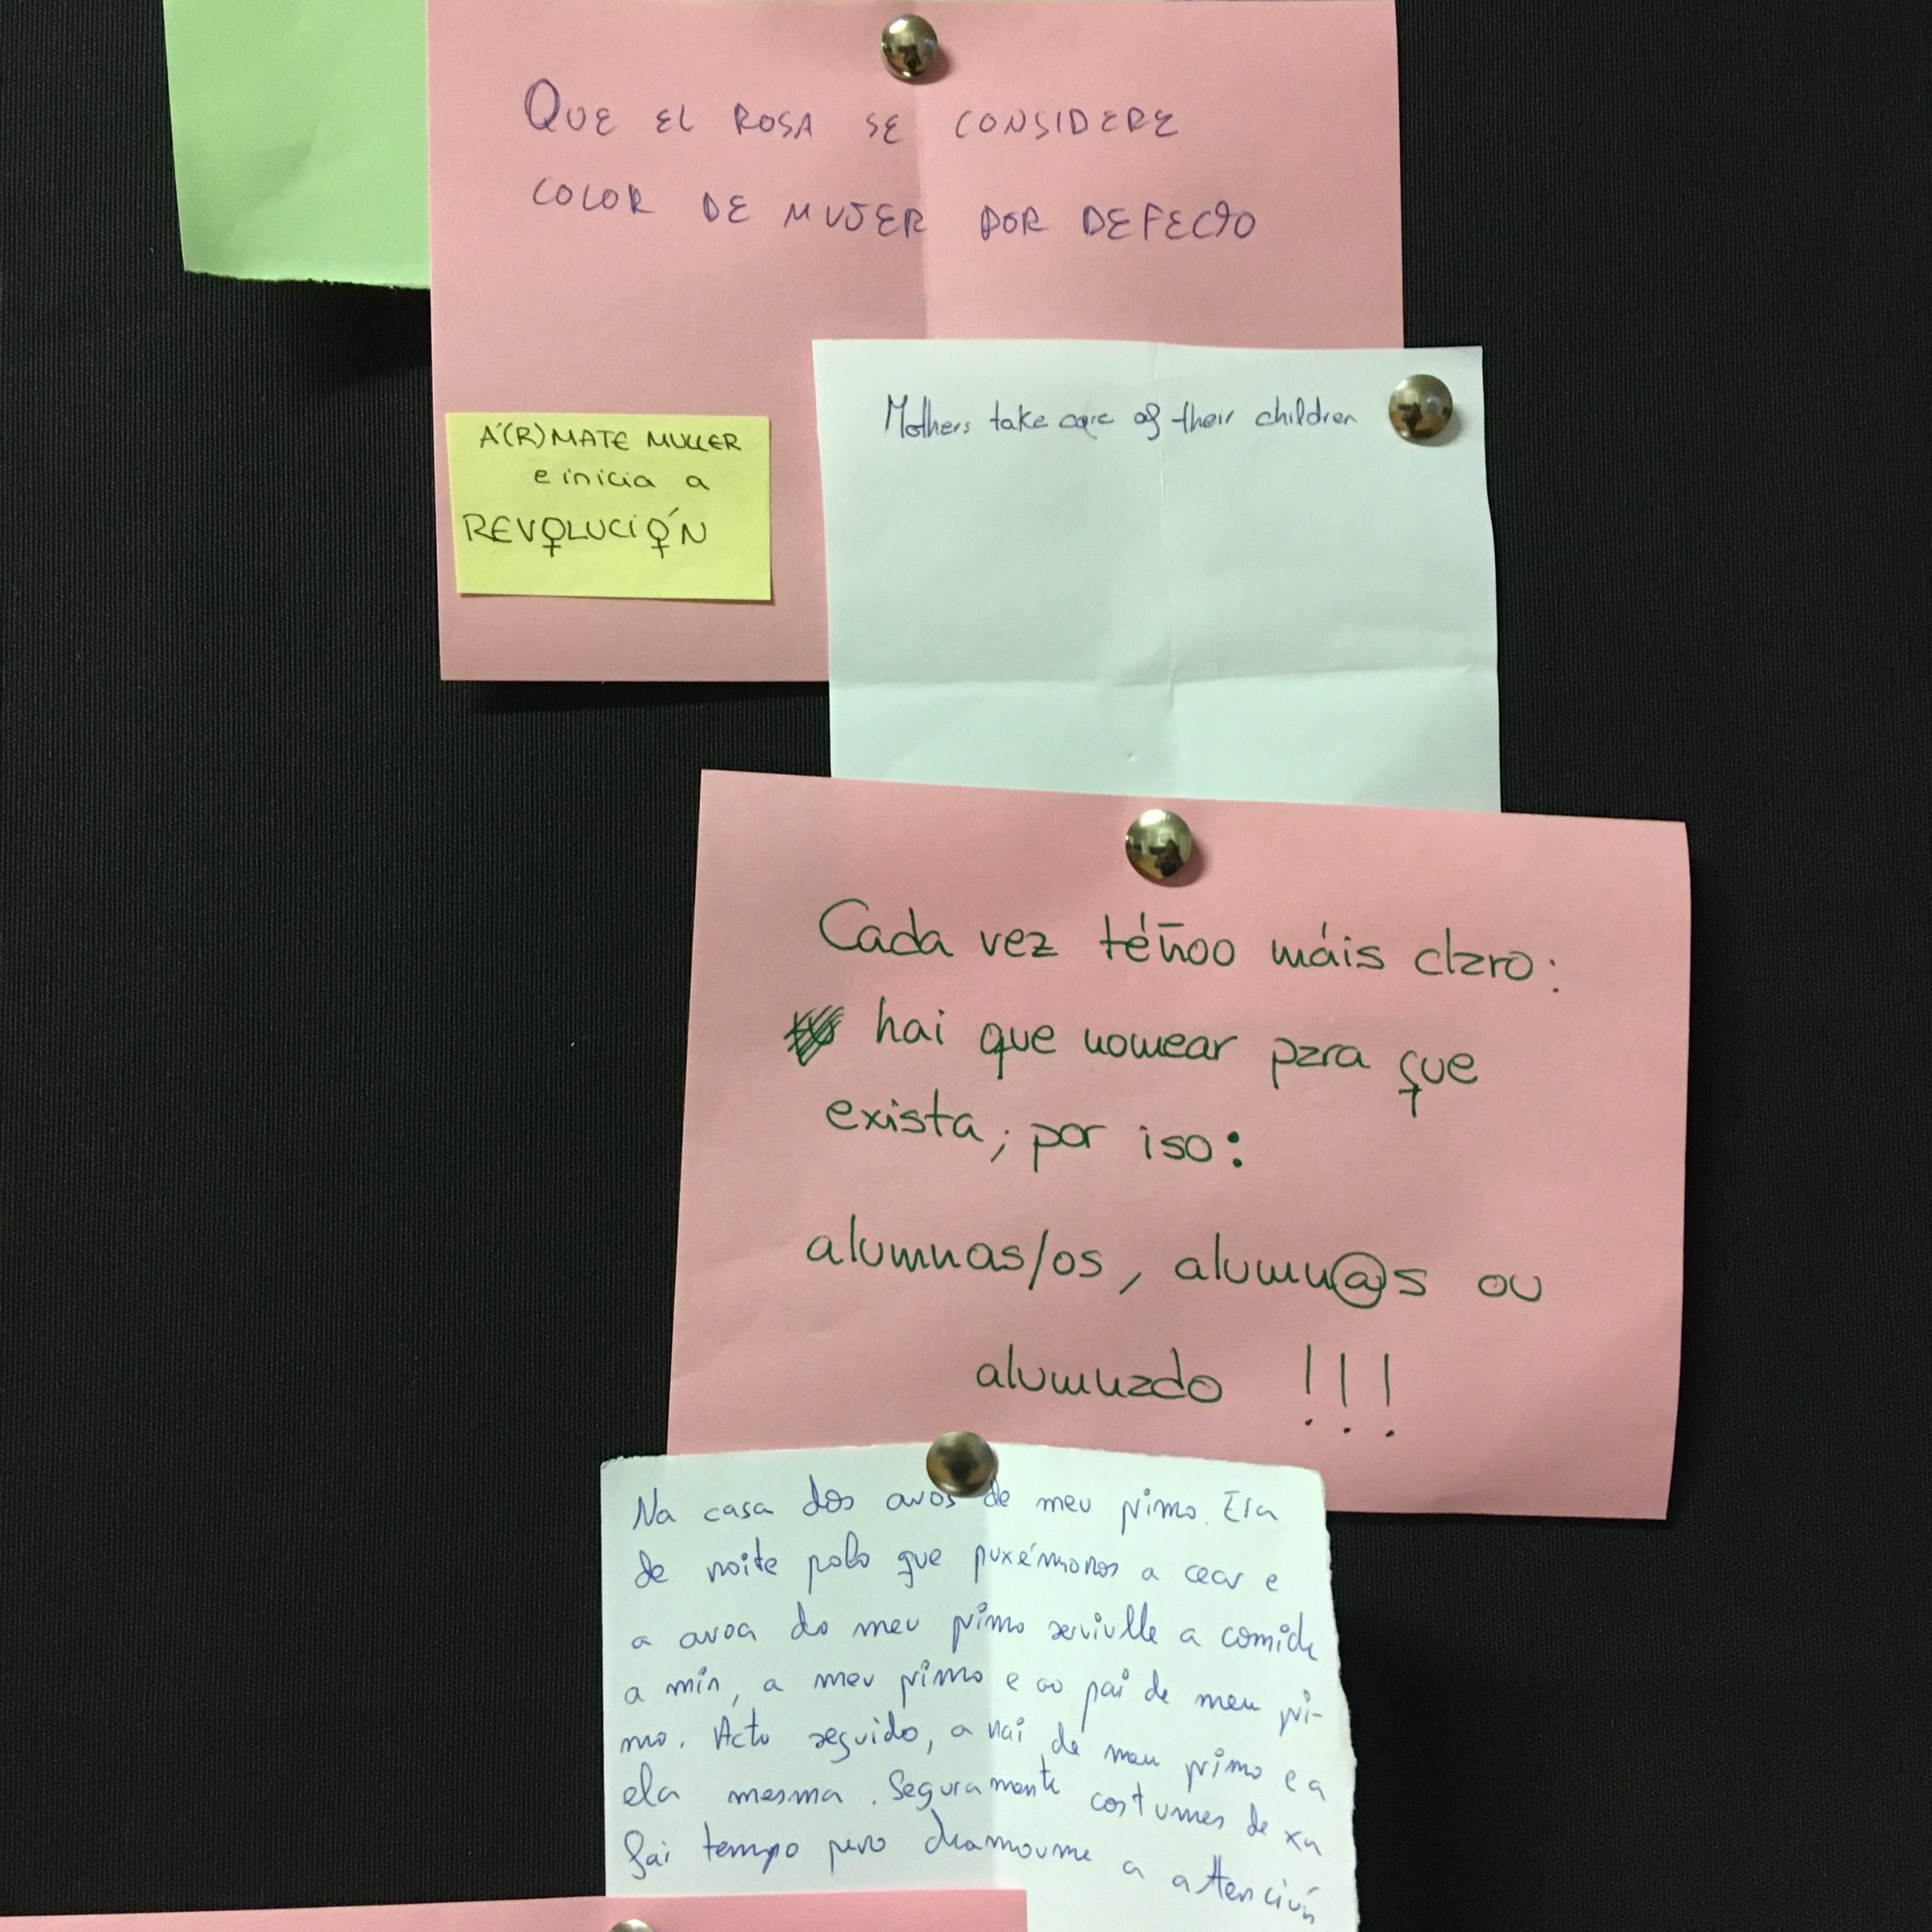 QUE EL ROSA SE CONSIDERE
COLOR DE MUJER POR DEFECTO
Á(R)MATE MULLER
e inicia a
REVOLUCIÓN
Mothers take care of their children
Cada vez téñoo máis claro:
hai que nomear para que
exista, por iso:
alumnas/os, alumn@s ou
alumnado !!!
Na casa dos avos de meu primo. Era
de noite polo que puxémonos a cear e
a avoa do meu primo serviulle a comida
a min, a meu primo e ao pai de meu pri-
mo. Acto seguido, a nai de meu primo e a
ela mesma. Seguramente costumes de xa
fai tempo pero chamoume a attención